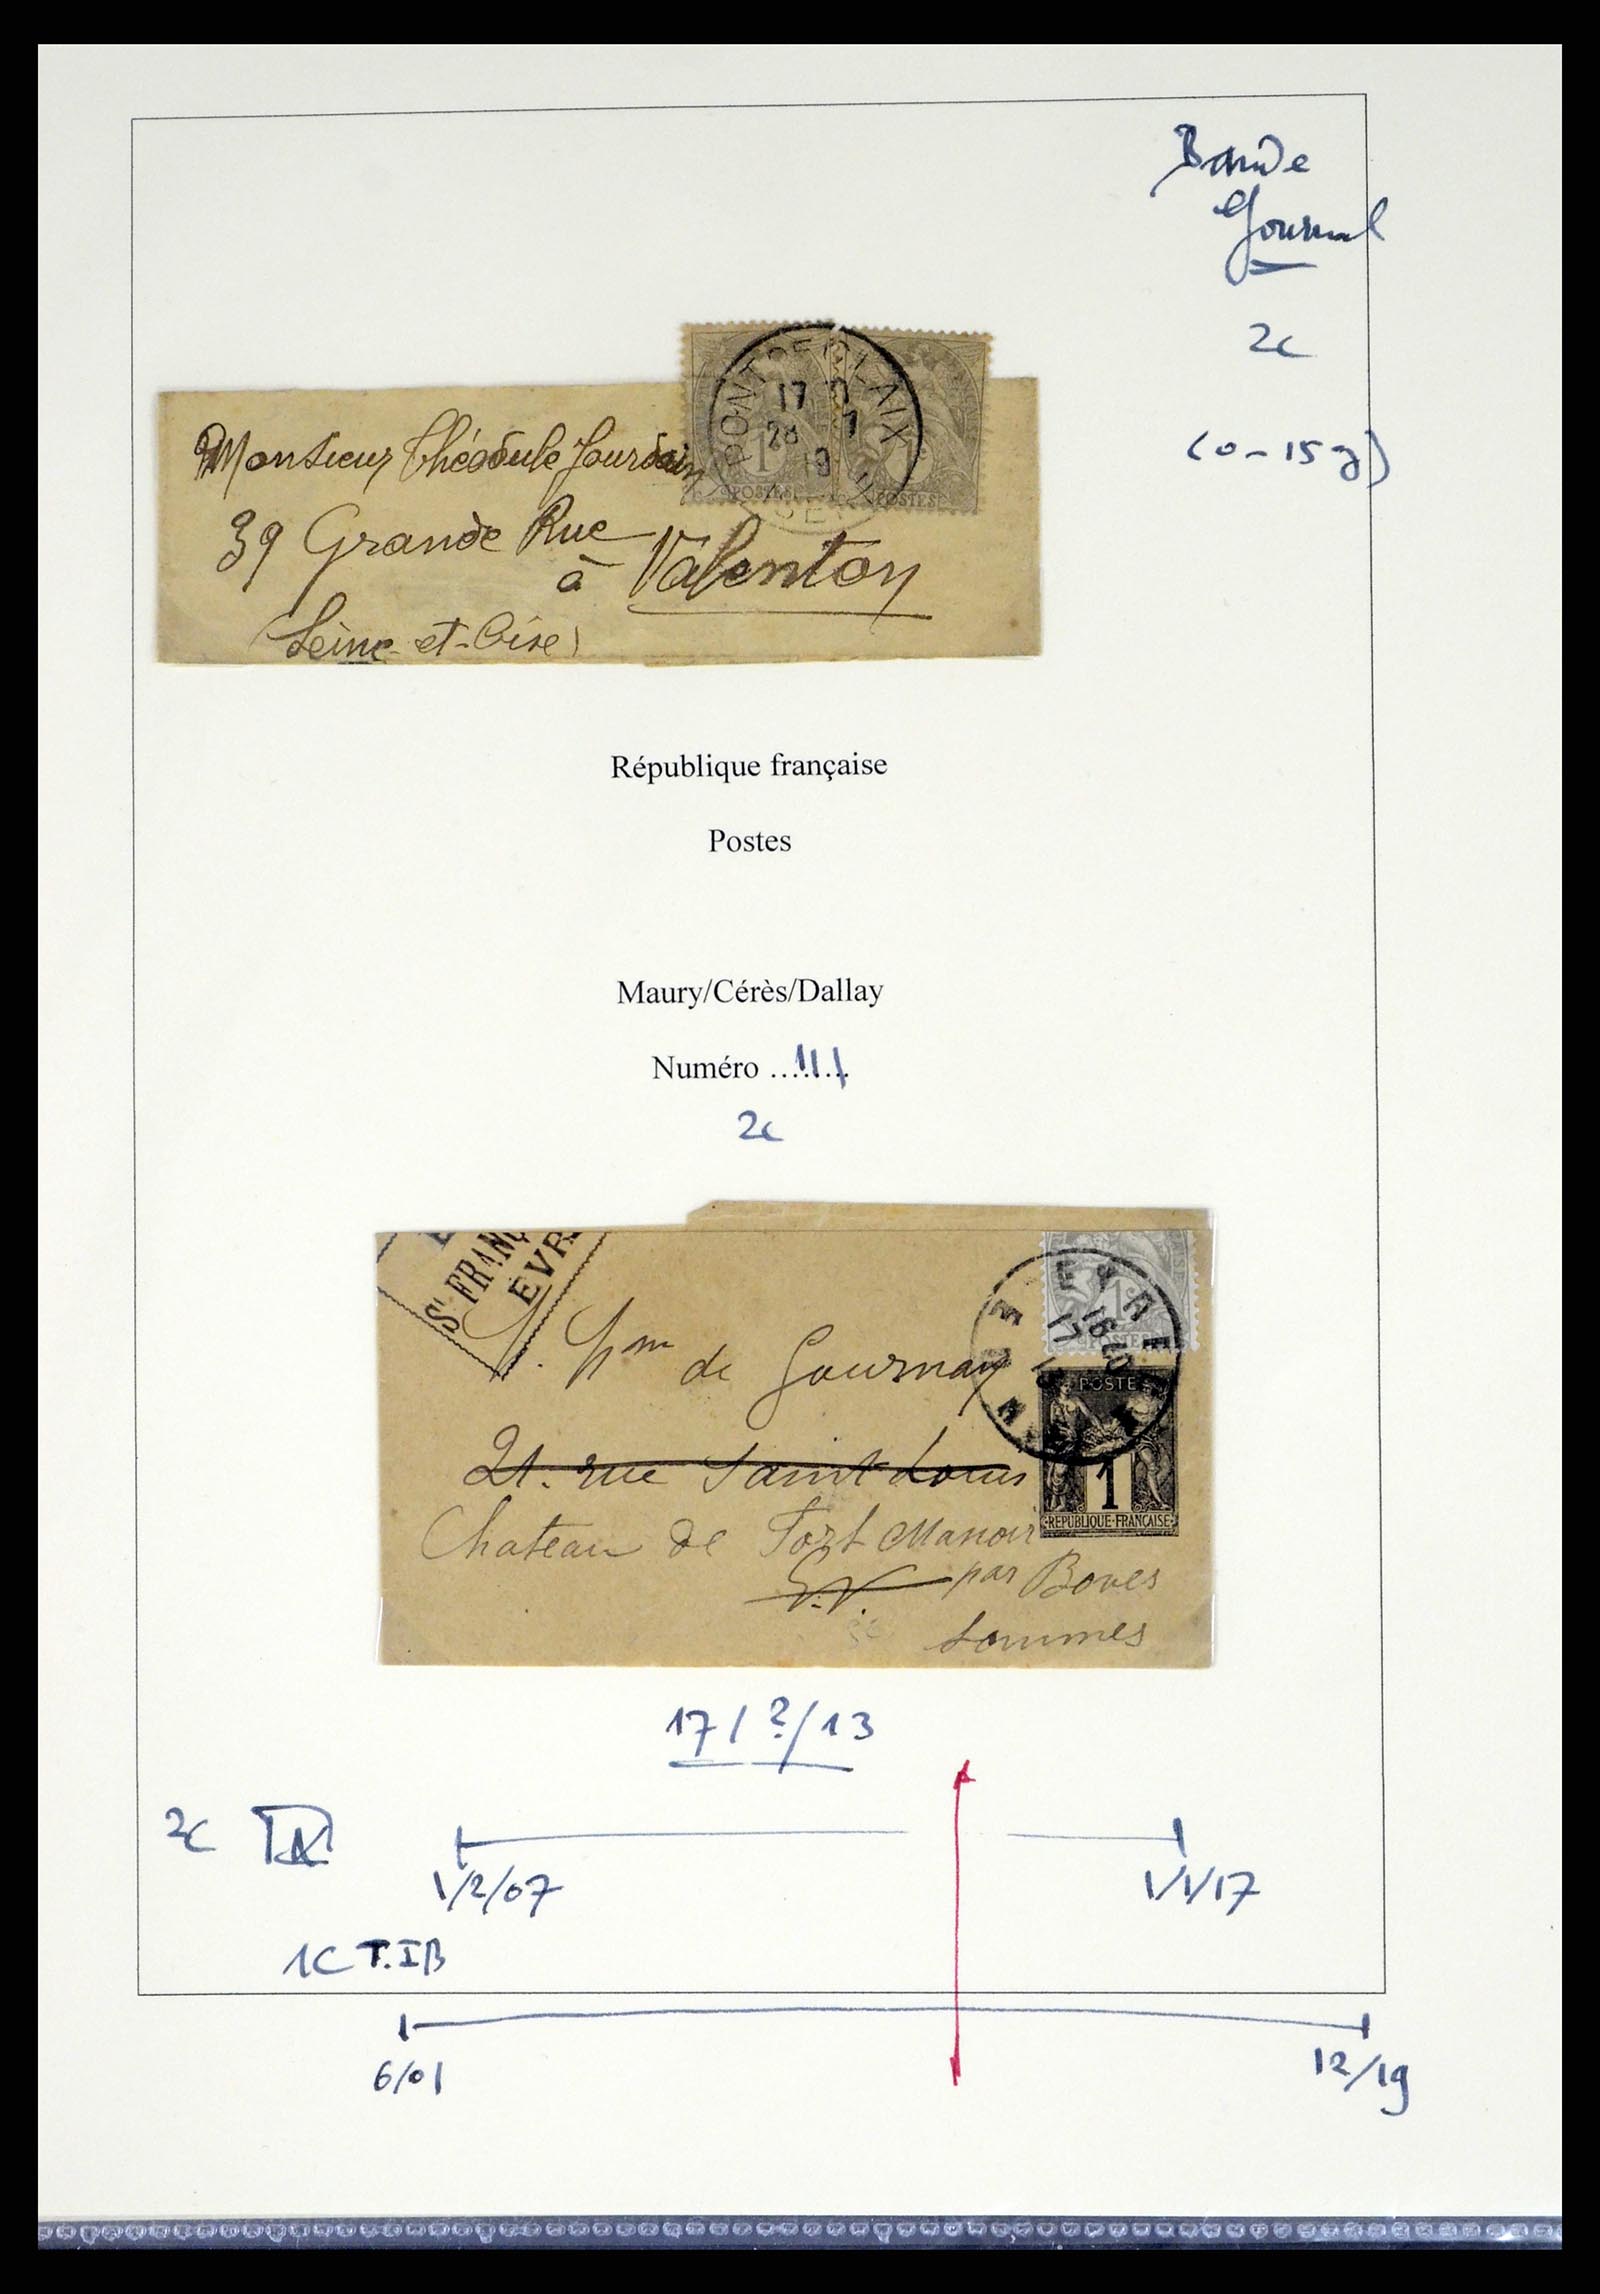 Bande
Journal
2c
(0-15g)
PONT DE CLAIX
17
28 7
ISERE
1c 1c
POSTES POSTES
Monsieur Théodule Jourdain
39 Grande Rue
à Valenton
(Seine-et-Oise)
République française
Postes
Maury/Cérès/Dallay
Numéro ........ 111
2c
St FRANÇ
ÉVR
EVREUX
16 40
17
13
EURE
1c
POSTES
POSTE
1
REPUBLIQUE FRANÇAISE
de Gournay
21. rue Saint Louis
Chateau de Fort Manoir
E.V. par Boves
Sommes
17/?/13
2c
1/2/07
1/1/17
1C T.IB
6/01
12/19